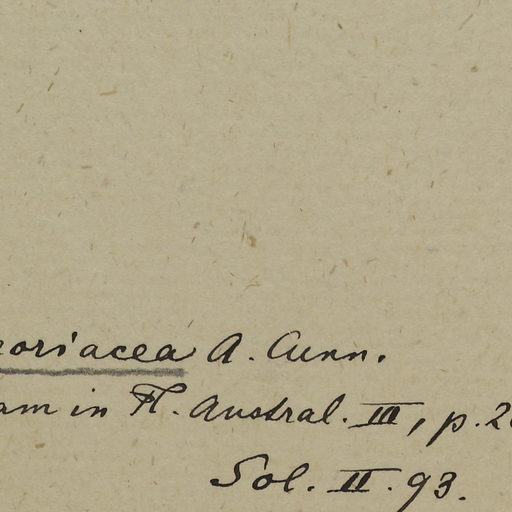 coriacea A. Cunn.
am in Fl. Austral. III, p. 2
Sol. II. 93.